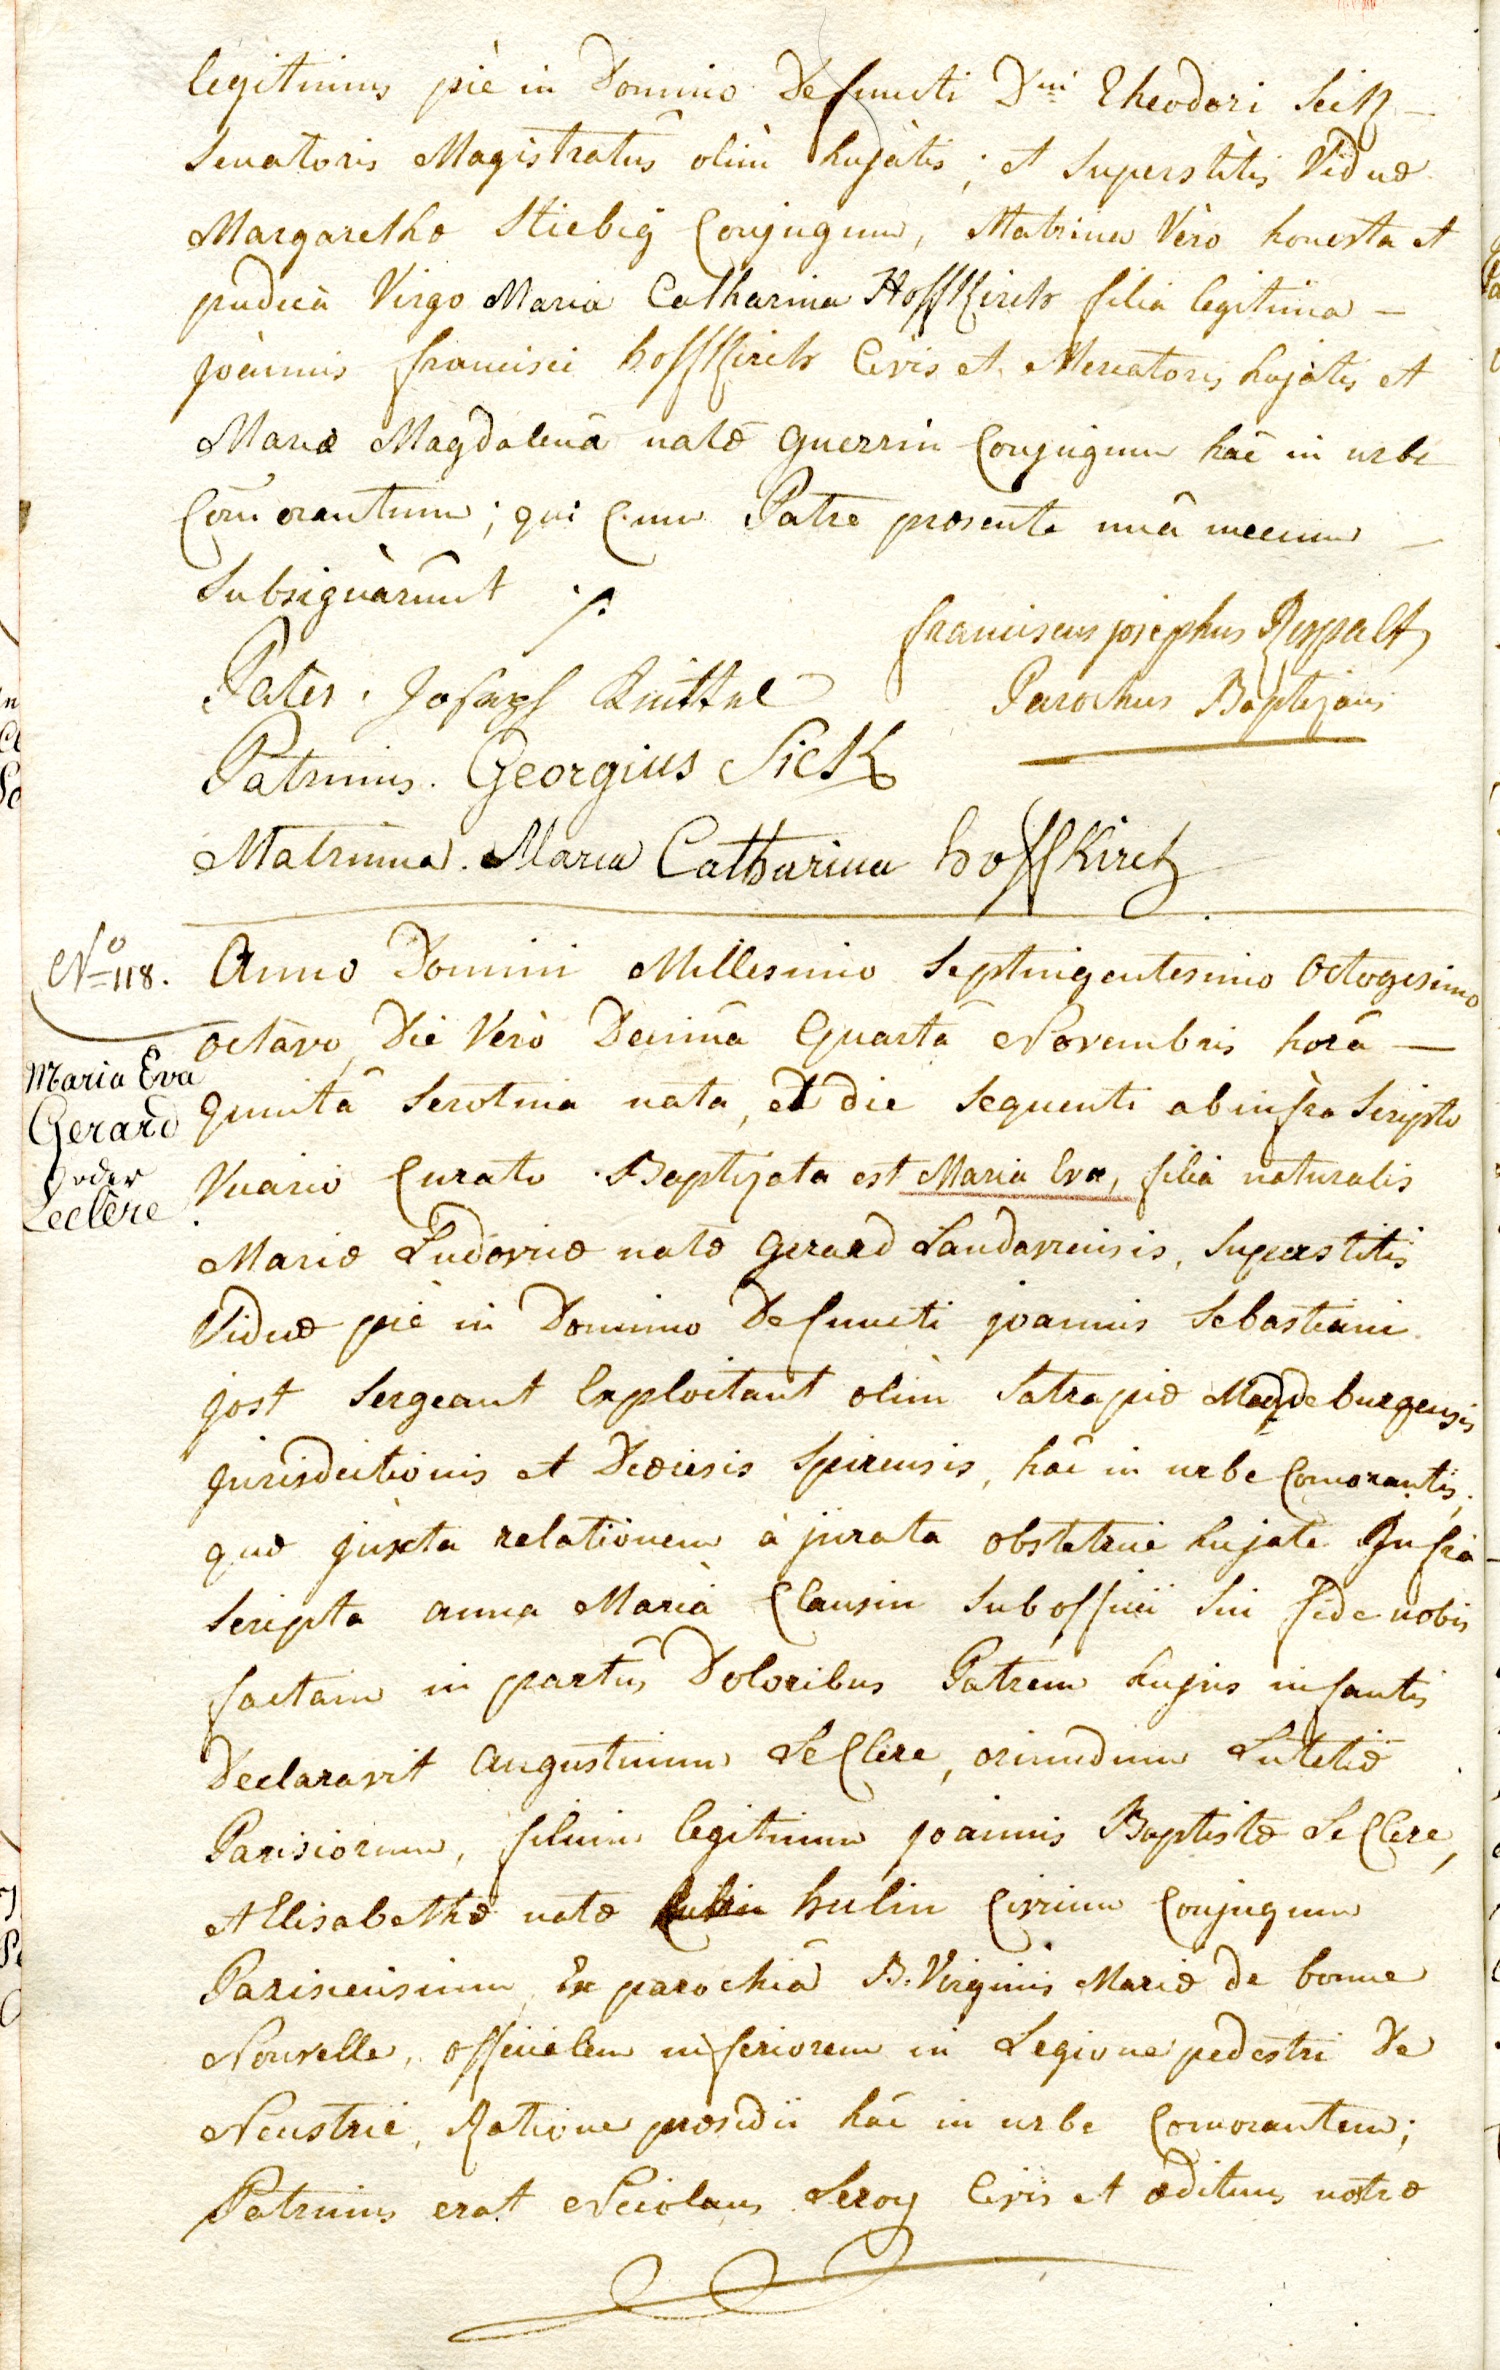 legitimus piè in Domino Defuncti Dni Theodori Seitz —
Senatoris Magistratûs olim hujàtis; et Superstitis Viduæ
Margarethæ Stiebig Conjugum, Matrina Vèro honesta et
pudicà Virgo Maria Catharina Hoffkirch filia legitima —
joannis francisci hoffkirch Civis et Mercatoris hujatis et
Mariæ Magdalenâ natæ Guerrin Conjugum hâc in urbe
Com̄orantium; qui Cum Patre præsente unâ mecum —
Subsignàrûnt ./.
franciscus josephus Rospalt
Parochus Baptizans
Pater. Joseph Knittel
Patrinus. Georgius Sick
Matrina. Maria Catharina hoffkirch
No 118.
Anno Domini Millesimo Septingentesimo Octogesimo
octavo, Die Verò Decimâ Quartâ Novembris horâ —
Maria Eva
Gerard
oder
Leclère
quintâ Serotina nata, et die Sequenti ab infra Scripto
Vicario Curato Baptizata est Maria Eva, filia naturalis
Mariæ Ludovicæ natæ Gerard Landaviensis, Superstitis
Viduæ piè in Domino Defuncti joannis Sebastiani
jost Sergeant Exploitant olim Satrapiæ Magdeburgensis
jurisdictionis et Diœcesis Spirensis, hâc in urbe Comorantis;
quæ juxta relationem à jurata obstetrice hujate Infra-
Scripta anna Marià Clausin Sub officii Sui fide nobis
factam in partûs Doloribus Patrem hujus infantis
Declaravit Augustinum LeClere, oriundum Lutetiæ
Parisiorum, filium legitimum joannis Baptistæ LeClere,
et Elisabethæ natæ hulin Civium Conjugum
Parisiensium Ex parochiâ B. Virginis Mariæ de bonne
Nouvelle, officialem inferiorem in Legione pedestri De
Neustrie, Ratione præsidii hâc in urbe Comorantem;
Patrinus erat Nicolaus Leroy Civis et ædituus nostræ